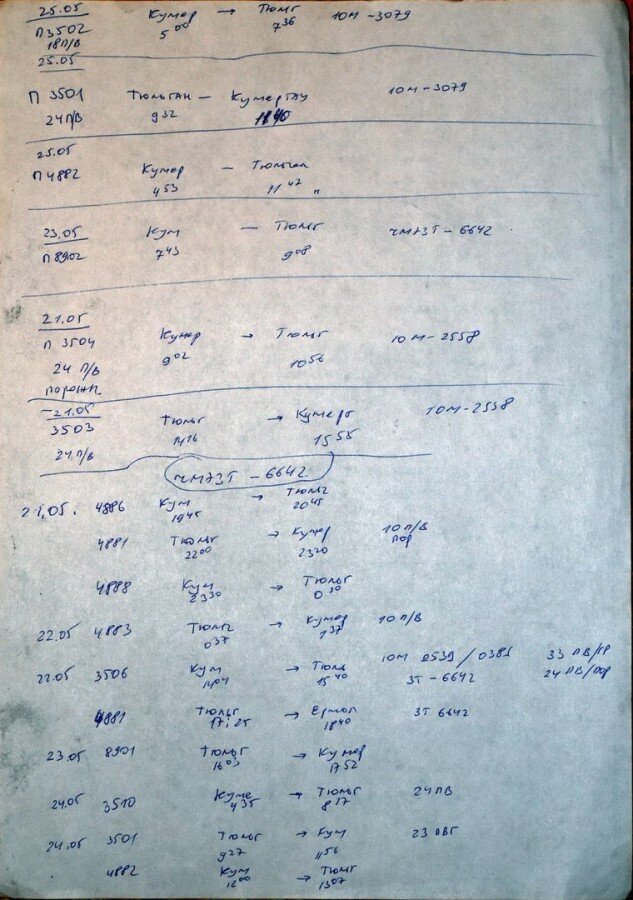 25.05 Кумер → Тюльг 10М-3079
П3502 5 00 7 36
18П/В
25.05
П 3501 Тюльган – Кумертау 10М-3079
24П/В 9 32 11 40
25.05
П4882 Кумер – Тюльган
4 53 11 47 "
23.05 Кум – Тюльг ЧМЭ3Т-6642
П8902 7 43 9 08
21.05
П 3504 Кумер → Тюльг 10М-2558
24 П/В 9 02 10 56
порожн
21.05 Тюльг → Кумерт 10М-2538
3503 14 16 15 55
24П/В
ЧМЭ3Т-6642
21.05. 4886 Кум → Тюльг
19 45 20 45
4881 Тюльг → Кумер 10П/В
22 00 23 20 пор
4888 Кум → Тюльг
23 30 0 30
22.05 4883 Тюльг → Кумер 10П/В
0 37 1 37
22.05 3506 Кум → Тюльг 10М 2539/0381 33 ПВ/гр
14 04 15 40 3Т-6642 24 ПВ/пор
4881 Тюльг → Ермол 3Т 6642
17:25 18 40
23.05 8901 Тюльг → Кумер
16 03 17 52
24.05 3510 Куме → Тюльг 24ПВ
4 35 8 17
24.05 3501 Тюльг → Кум 23 ПВГ
9 27 11 56
4882 Кум → Тюльг
12 00 13 07